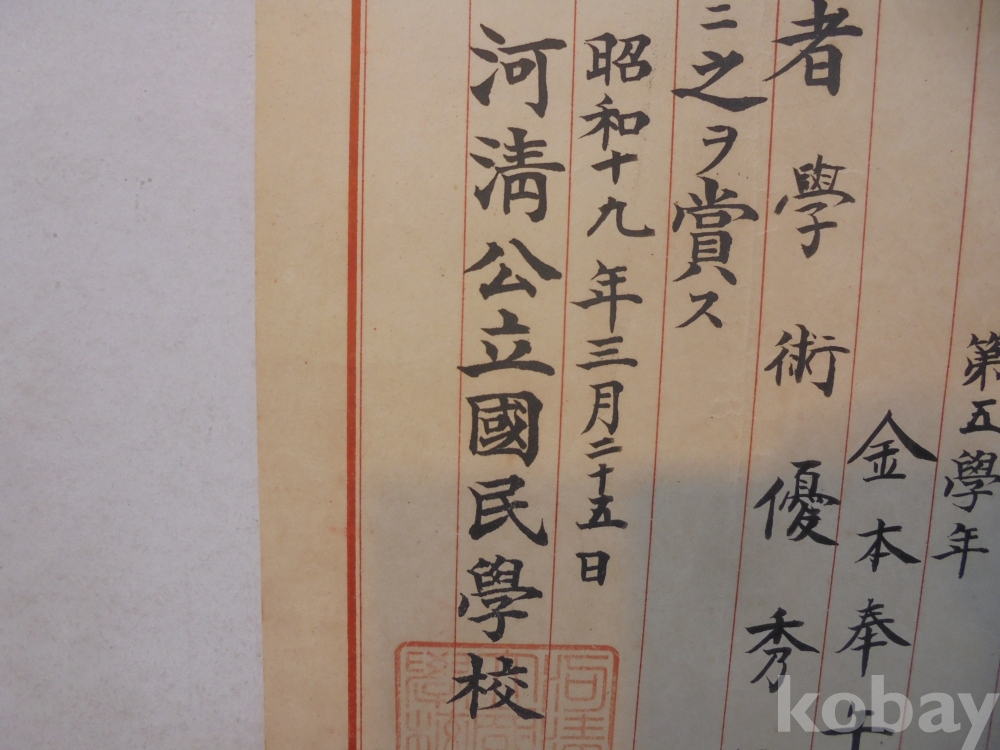 第五學年
金本奉午
者學術優秀
ニ之ヲ賞ス
昭和十九年三月二十五日
河淸公立國民學校
kobay